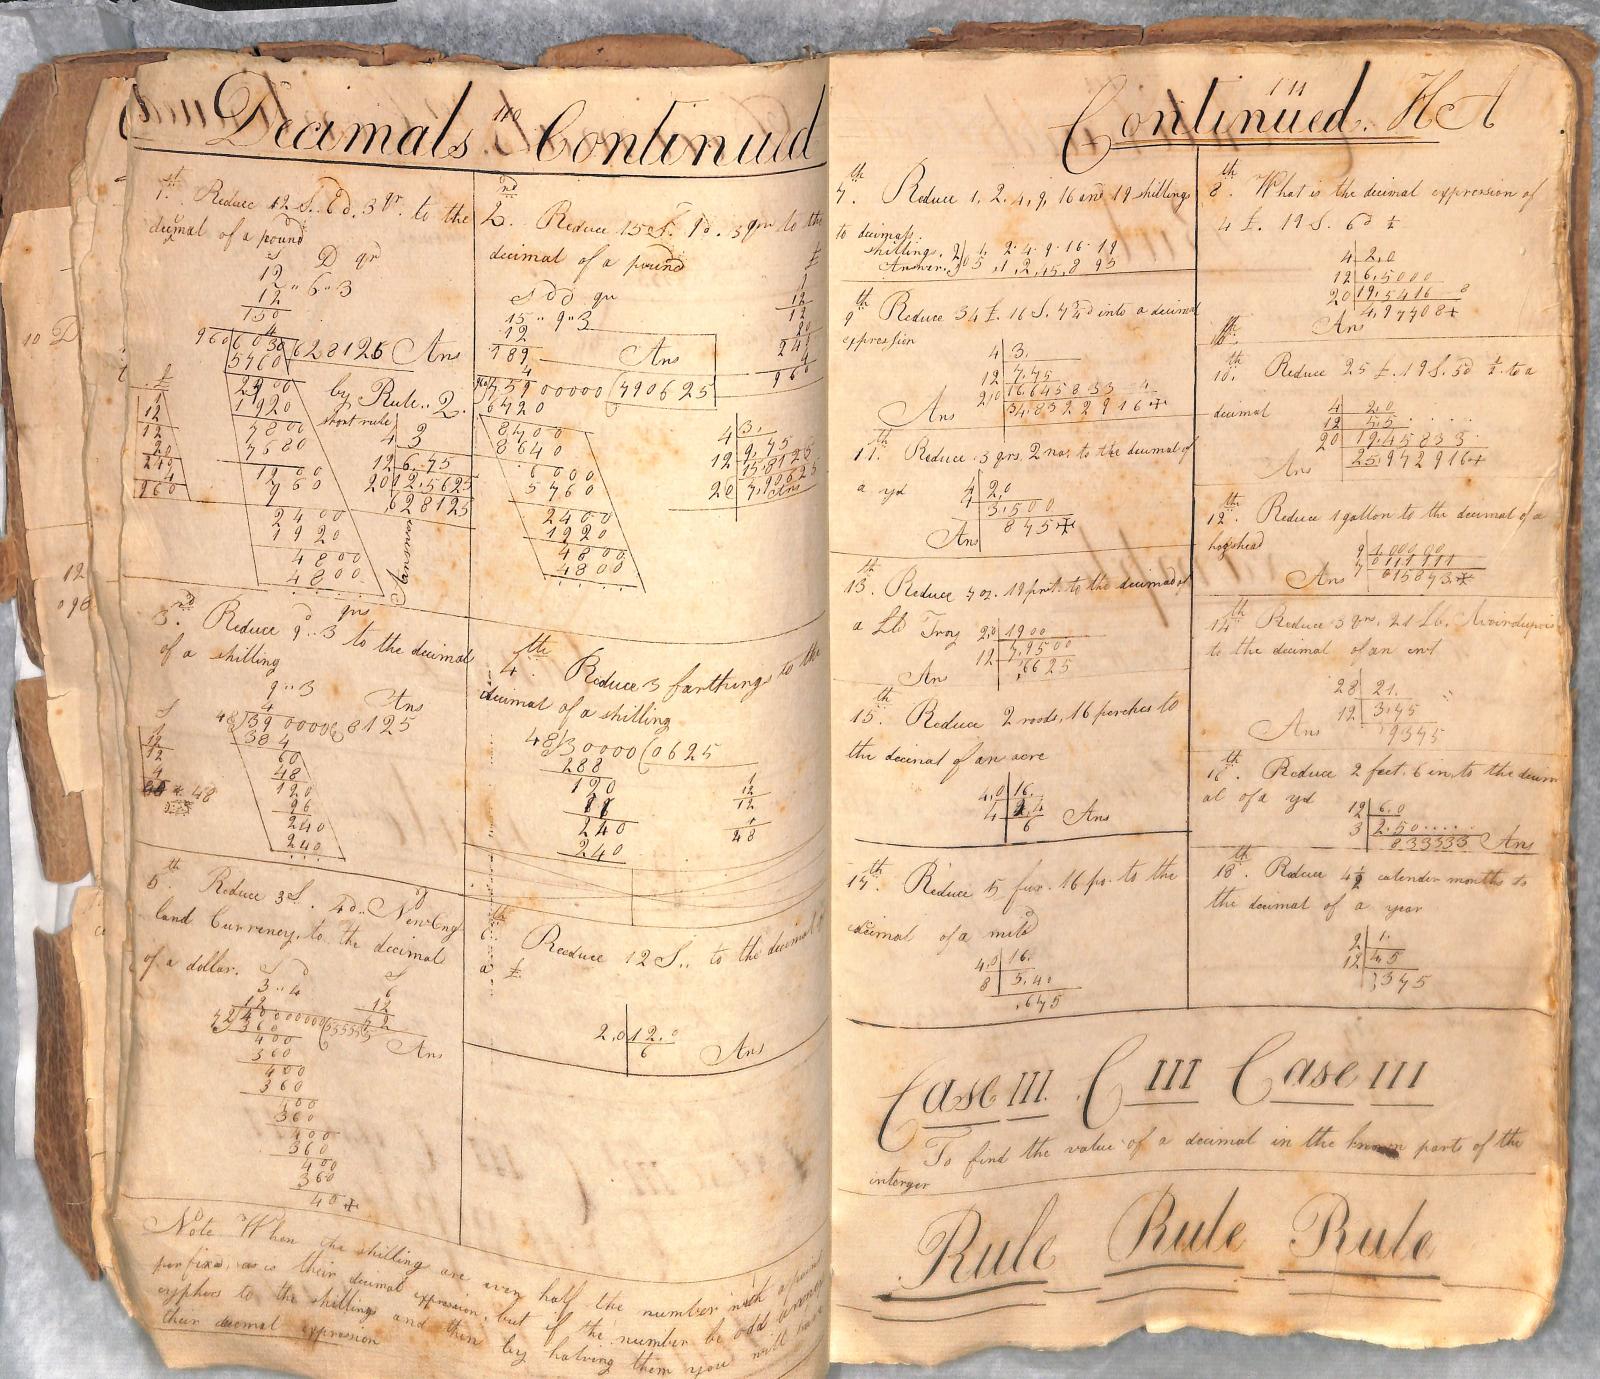 110
Decimals Continued
1st. Reduce 12 S. 6d. 3 qr. to the
decimal of a pound
S D qr
12 .. 6 .. 3
12
150
4
960)603 (628125 Ans
5760
2700
1920
7800
7680
1200
960
2400
1920
4800
4800
£
1
12
12
20
240
4
960
by Rule .. 2.
short rule
4 3
12 6.75
20 12.5625
628125
Answer
2nd. Reduce 15 S. 9d. 3 qrs to the
decimal of a pound
S d qr
15 .. 9 .. 3
12
189
4
960)759 00000 (790625
Ans
6720
8700
8640
6000
5760
2400
1920
4800
4800
£
1
12
12
20
240
4
960
4 3.
12 9.75
20 15.8125
7.90625
Ans
3rd. Reduce 9d .. 3 qrs to the decimal
of a shilling
9 .. 3
4
48)39 00000(8125
Ans
384
60
48
120
96
240
240
S
1
12
12
4
48
4th. Reduce 3 farthings to the
decimal of a shilling
48)30000(0625
288
120
240
240
1
12
12
4
48
5th. Reduce 3 S. 4d. New Eng
land Currency, to the decimal
of a dollar.
S d
3 .. 4
12
S
6
12
72
72)40000000(55555
Ans
360
400
360
400
360
400
360
400
360
400
360
40 +
6th Reeduce 12 S.. to the decimal of
a £
2.0 12.0
6 Ans
Note When the shilling are even half the number with a point
perfixd, as is their decimal expression, but if the number be odd annex
cyphers to the shillings and then by halving them you will have
their decimal expression
111
Continued. HA
7th. Reduce 1, 2, 4, 9, 16 and 19 shillings
to decimals.
shillings. 2) 1. 2. 4. 9. 16. 19
Answer. 05 ,1 ,2 ,45 ,8 95
8th. What is the decimal expression of
4 £. 19 S. 6d ½
4 2.0
12 6.5000
20 19.5416 8
4.97708+
Ans
9th Reduce 34 £. 16 S. 7¾d into a decimal
expression
4 3.
12 7.75
2.0 16.645833 4
34.832 2916+
Ans
10th. Reduce 25 £. 19 S. 5d ½ to a
decimal
4 2.0
12 5.5
20 19.45833
25.972916+
Ans
11th. Reduce 3 qrs. 2 na. to the decimal of
a yd
4 2.0
4 3.500
875+
Ans
12th. Reduce 1 gallon to the decimal of a
hogshead
9 1.00000
7 0111111
015873+
Ans
13th. Reduce 7 oz. 19 pwt. to the decimal of
a Lb Troy
2.0 19.00
12 7.9500
.6625
Ans
14th Reduce 3 qrs. 21 Lb. Avoirdupois
to the decimal of an cwt
28 21.
12 3.75
9375
Ans
15th. Reduce 2 roods, 16 perches to
the decimal of an acre
4.0 16.
4 2.4
6 Ans
16th. Reduce 2 feet. 6 in. to the decim
al of a yd
12 6.0
3 2.50.....
833333 Ans
17th. Reduce 5 fur. 16 po. to the
decimal of a mile
4.0 16.
8 5.40
.675
18th. Reduce 4½ calender months to
the decimal of a year
2 1.
12 4.5
.375
Case III. C III Case III
To find the value of a decimal in the known parts of the
interger
Rule Rule Rule
10 D
12